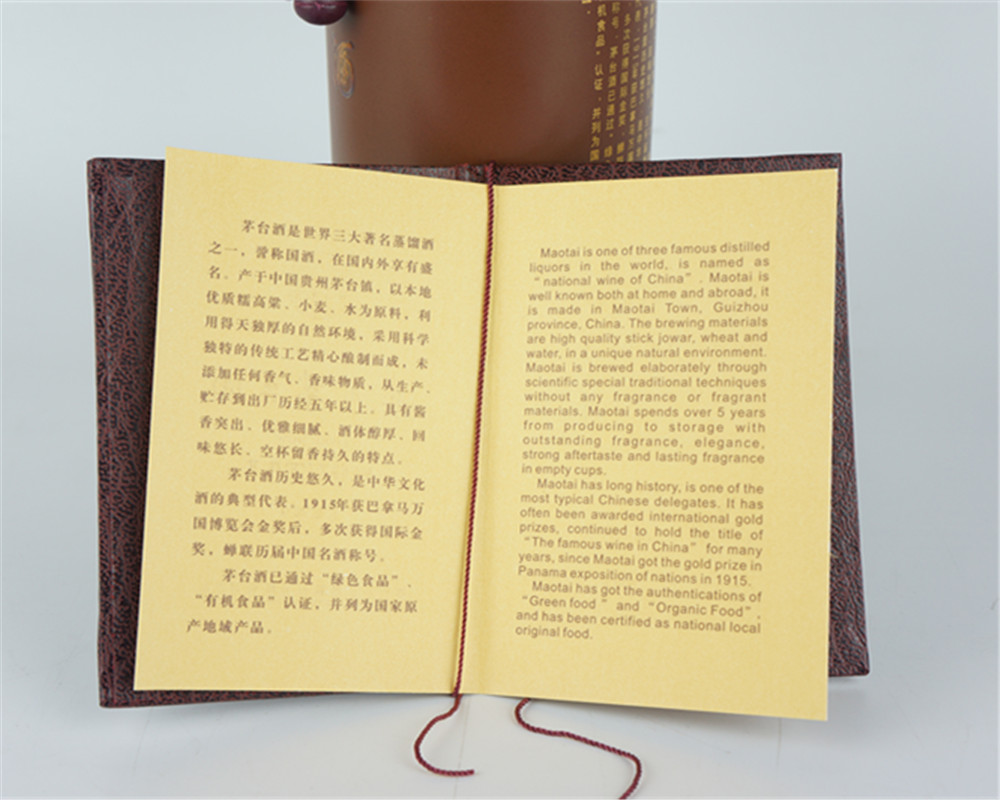 茅台酒是世界三大著名蒸馏酒
之一，誉称国酒，在国内外享有盛
名。产于中国贵州茅台镇，以本地
优质糯高粱、小麦、水为原料，利
用得天独厚的自然环境，采用科学
独特的传统工艺精心酿制而成，未
添加任何香气、香味物质，从生产、
贮存到出厂历经五年以上。具有酱
香突出、优雅细腻、酒体醇厚、回
味悠长、空杯留香持久的特点。
茅台酒历史悠久，是中华文化
酒的典型代表。1915年获巴拿马万
国博览会金奖后，多次获得国际金
奖，蝉联历届中国名酒称号。
茅台酒已通过“绿色食品”、
“有机食品”认证，并列为国家原
产地域产品。
Maotai is one of three famous distilled
liquors in the world, is named as
“national wine of China”. Maotai is
well known both at home and abroad, it
is made in Maotai Town, Guizhou
province, China. The brewing materials
are high quality stick jowar, wheat and
water, in a unique natural environment.
Maotai is brewed elaborately through
scientific special traditional techniques
without any fragrance or fragrant
materials. Maotai spends over 5 years
from producing to storage with
outstanding fragrance, elegance,
strong aftertaste and lasting fragrance
in empty cups.
Maotai has long history, is one of the
most typical Chinese delegates. It has
often been awarded international gold
prizes, continued to hold the title of
“The famous wine in China” for many
years, since Maotai got the gold prize in
Panama exposition of nations in 1915.
Maotai has got the authentications of
“Green food” and “Organic Food”,
and has been certified as national local
original food.
多次获得国际金奖，蝉
称号。茅台酒已通过“绿
机食品”认证，并列为国